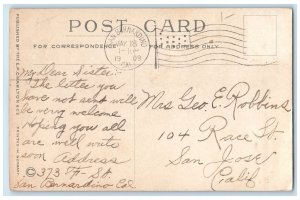 POST CARD
FOR CORRESPONDENCE
FOR ADDRESS ONLY
SAN BERNARDINO
MAY 18
1909
CAL
My Dear Sister:-
The letter you
have not sent will
be very welcome
Hoping you all
are well write
soon Address
373 F St.
San Bernardino Cal
Mrs Geo. E. Robbins
104 Race St.
San Jose
Calif